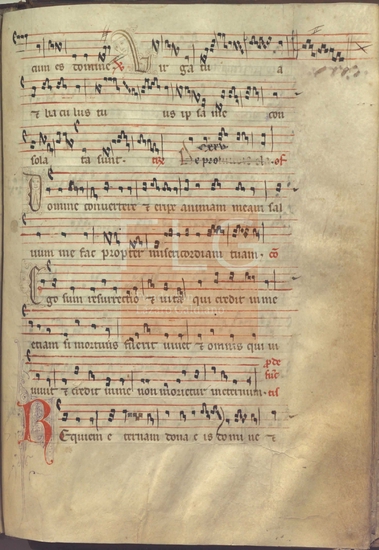 cum es domine. V Uir ga tu a
& ba cu lus tu us ip sa me con
sola ta sunt. De profundis of
Domine convertere & eripe animam meam sal
uum me fac propter misericordiam tuam. co
Ego sum resurrectio & uita qui credit in me
etiam si mortuus fuerit uiuet & omnis qui ui
uuit & credit in me non morietur ineternum.
Requiem e ternam dona e is domi ne &